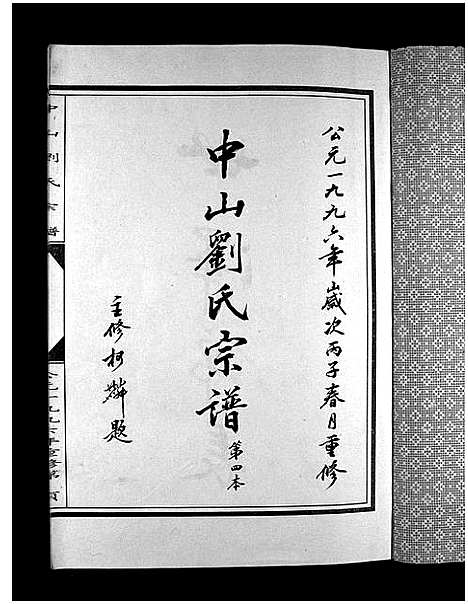 公元一九九六年歲次丙子春月重修
中山劉氏宗譜
第四本
主修柯麟題
中山劉氏宗譜
公元一九九六年重修第一頁